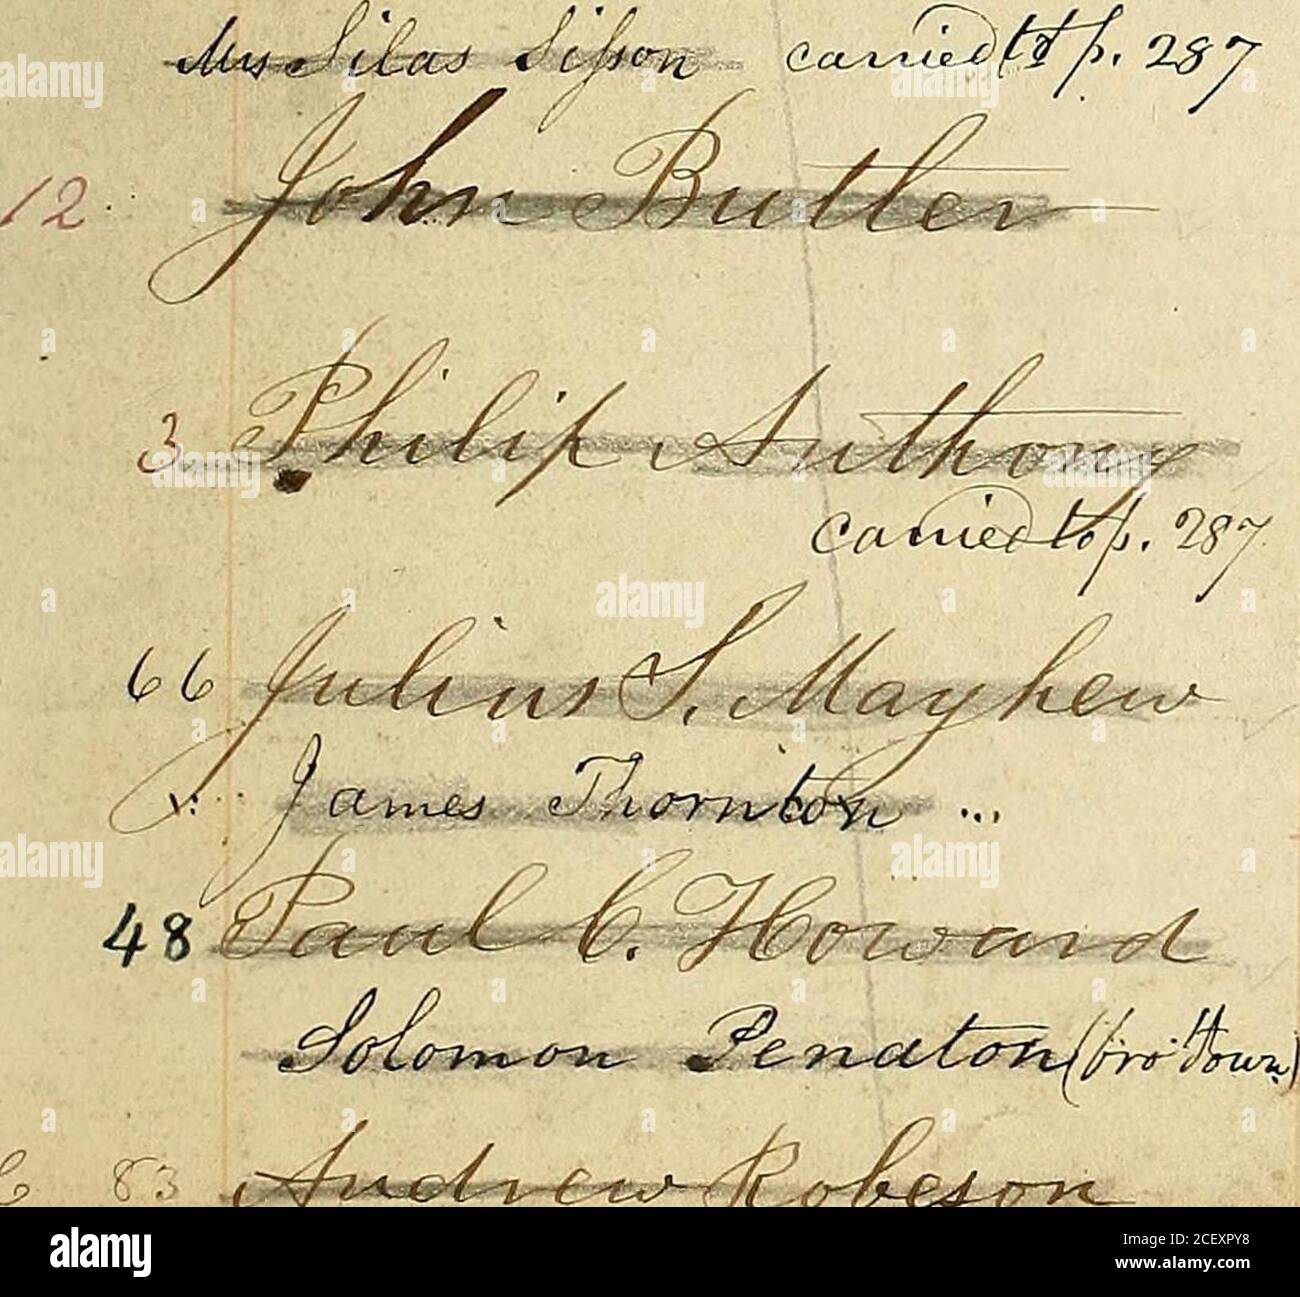 Mrs Silas Sisson carried to p. 287
12 John Butler
3 Philip Anthony
carried to p. 287
66 Julius S. Mayhew
James Thornton ...
48 Paul C. Howard
Solomon Penaton (bro' town)
83 Andrew Robeson
alamy
Image ID: 2CEXPY8
www.alamy.com